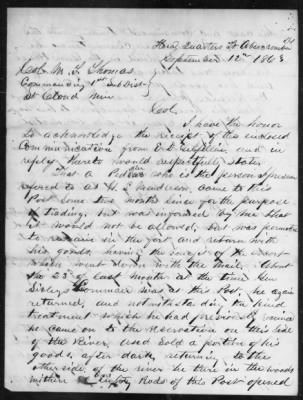 Head Quarters Ft Abercrombie
September 12th 1863
Col. M. T. Thomas
Commanding 1st Sub Dist
St Cloud Min
Col.
I have the honor
to acknowledge the receipt of the enclosed
Communication from and in
reply thereto would respectfully state
That a Pedler who is the person I presume
refered to as H. L. came to this
Post some two months since for the purpose
of trading, but was informed by me that
it would not be allowed, but was permited
to remain in the fort and return with
his goods, having the benefit of the escort
which went down with the mail. About
the 23d of last month at the time Gen
Sibleys Command was at this Post, he again
returned, and notwithstanding the kind
treatment which he had previously received
he came on to the Reservation on this side
of the River, and sold a portion of his
goods, after dark, returning to the
other side of the river he there in the woods
within Rods of this Post opened